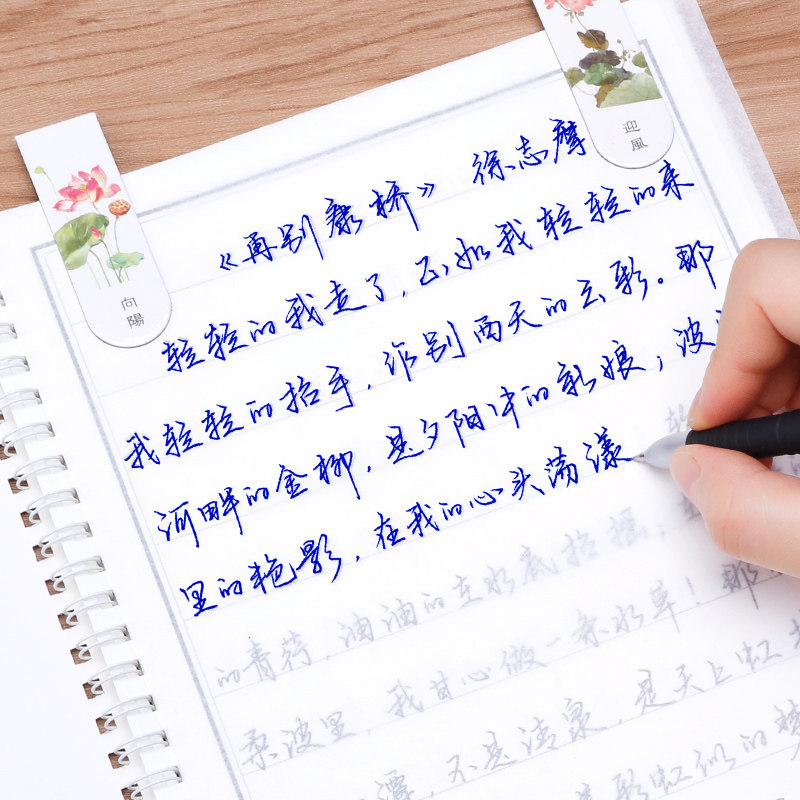 迎風
向陽
《再别康桥》 徐志摩
轻轻的我走了,正如我轻轻的来
我轻轻的招手,作别西天的云彩。那
河畔的金柳,是夕阳中的新娘;波
里的艳影,在我的心头荡漾
的青荇,油油的在水底招摇;
柔波里,我甘心做一条水草!那
潭,不是清泉,是天上虹
彩虹似的梦